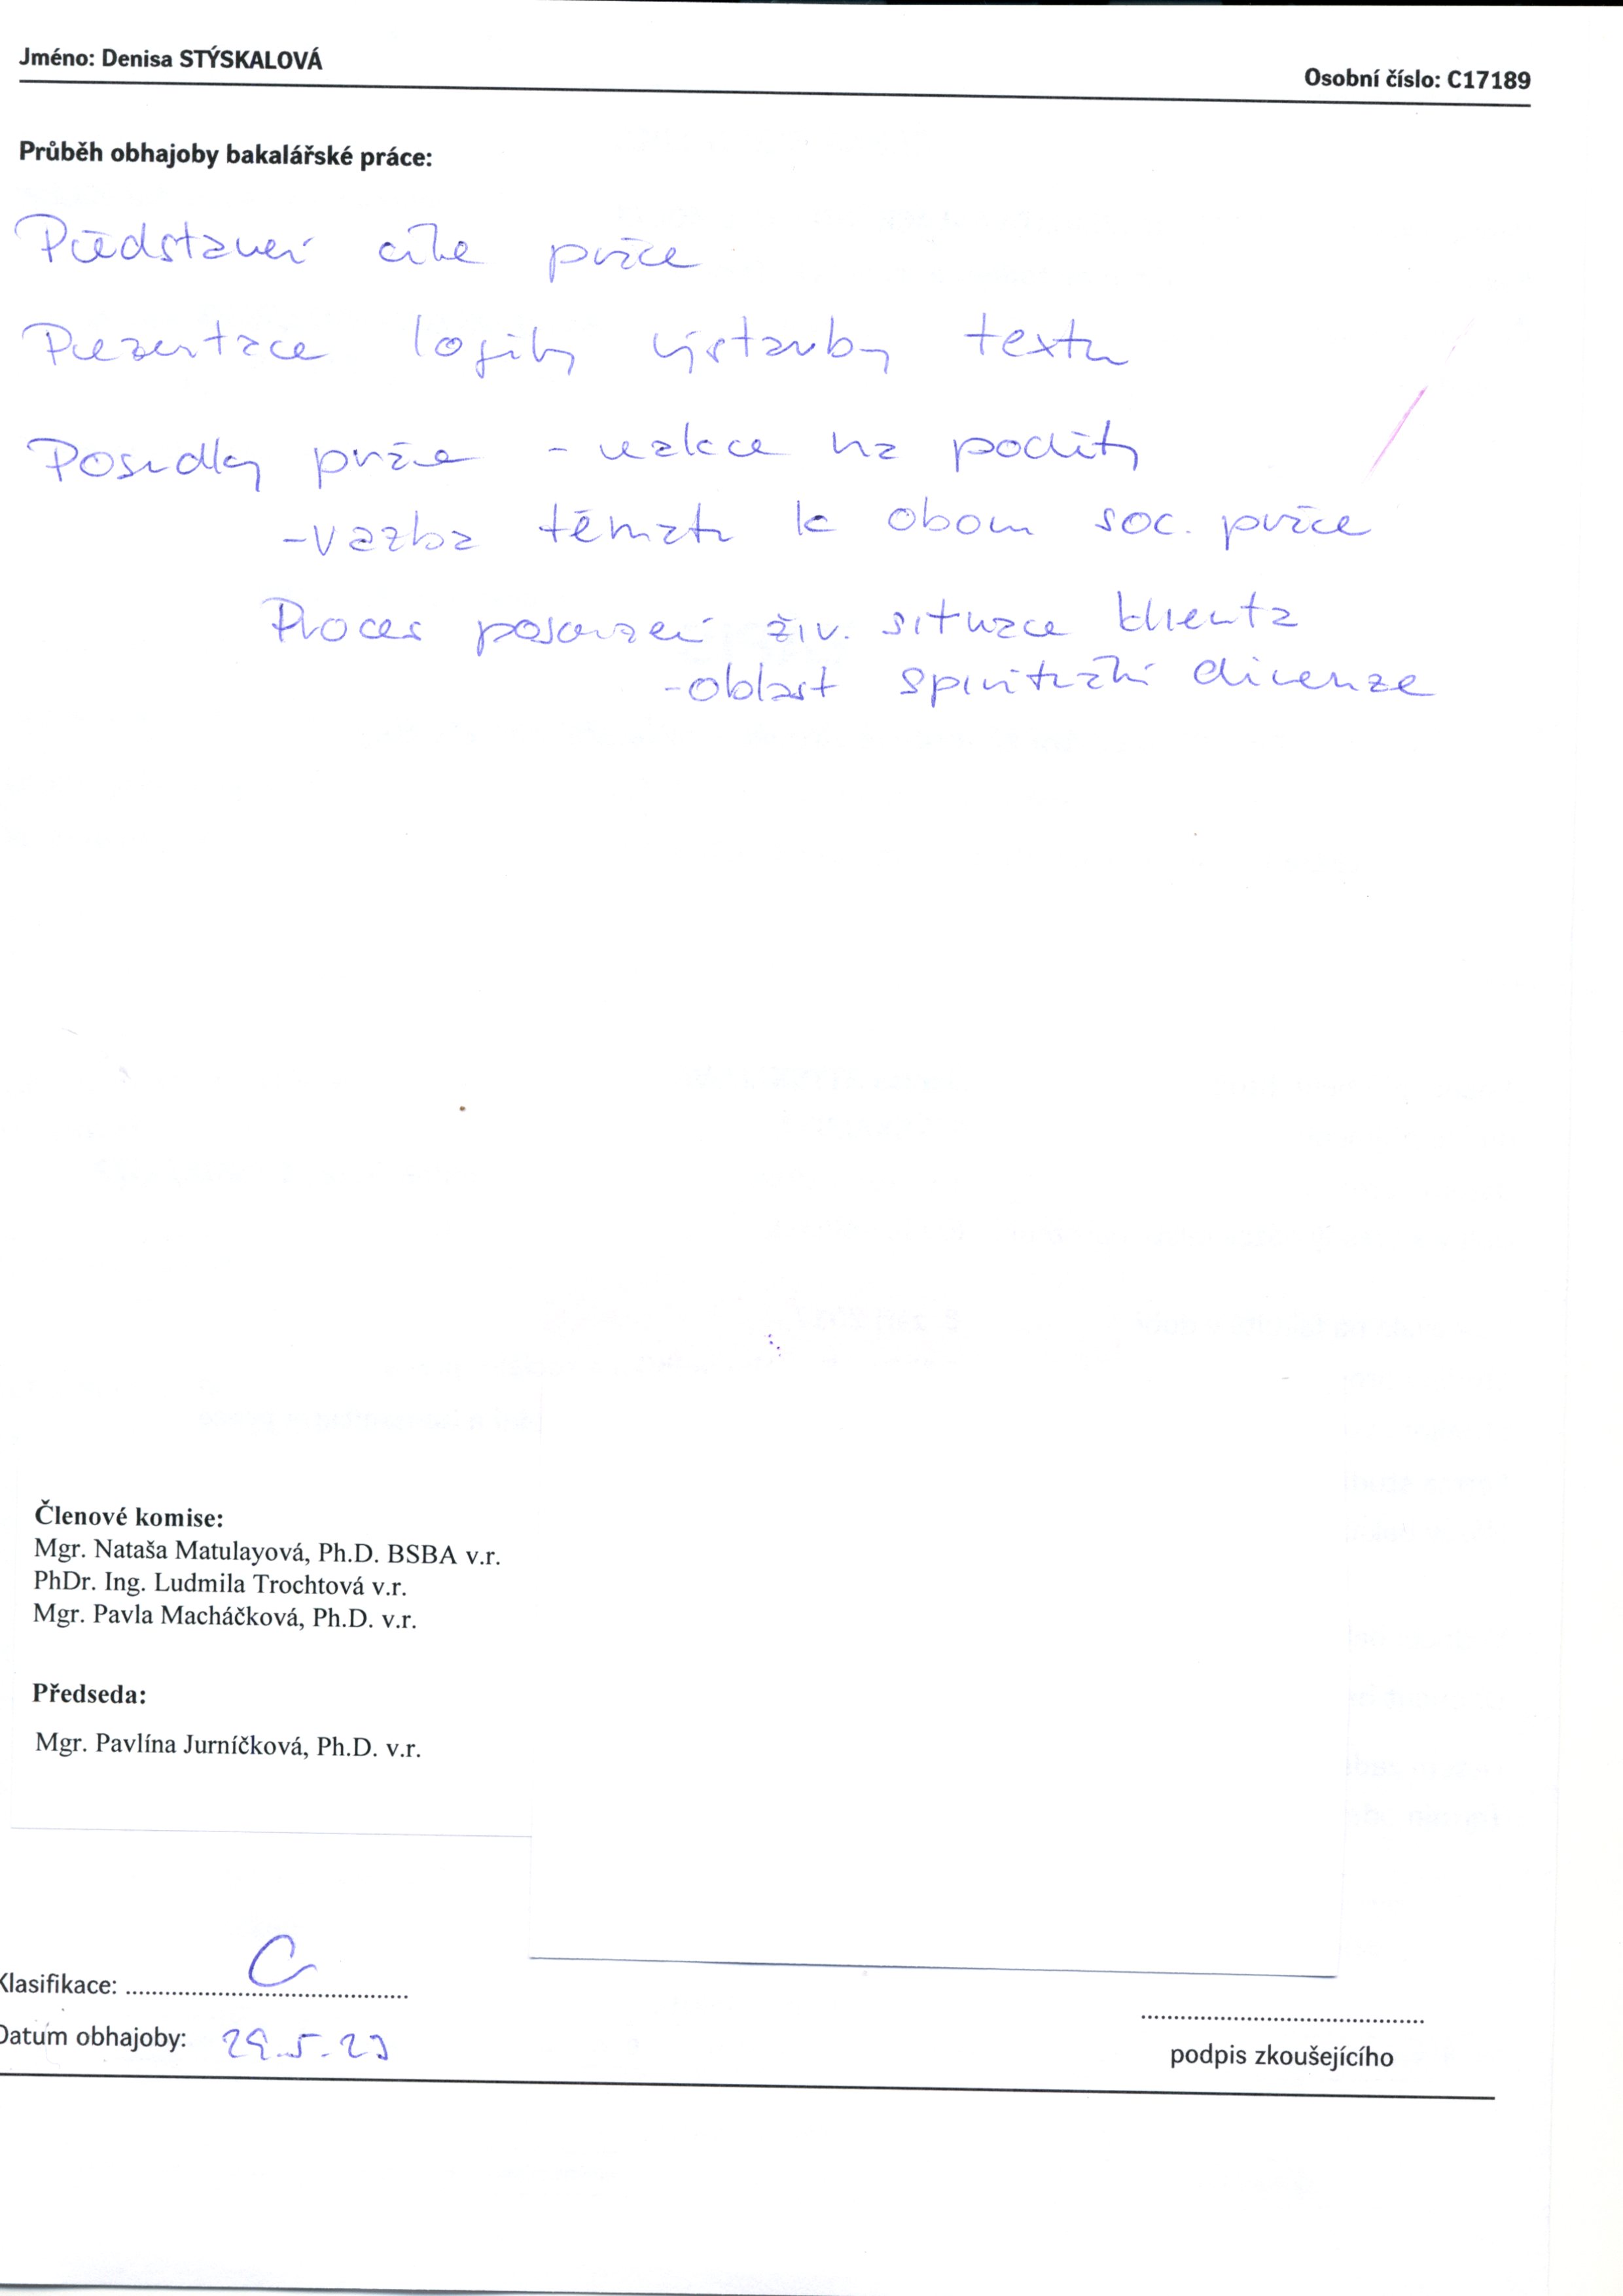 Jméno: Denisa STÝSKALOVÁ
Osobní číslo: C17189
Průběh obhajoby bakalářské práce:
Představení cíle práce
Prezentace logiky výstavby textu
Posudky práce - reakce na podněty
- vazba tématu k oboru soc. práce
Proces posouzení živ. situace klienta
- oblast spirituální dimenze
Členové komise:
Mgr. Nataša Matulayová, Ph.D. BSBA v.r.
PhDr. Ing. Ludmila Trochtová v.r.
Mgr. Pavla Macháčková, Ph.D. v.r.
Předseda:
Mgr. Pavlína Jurníčková, Ph.D. v.r.
Klasifikace: C
Datum obhajoby: 29.5.23
podpis zkoušejícího